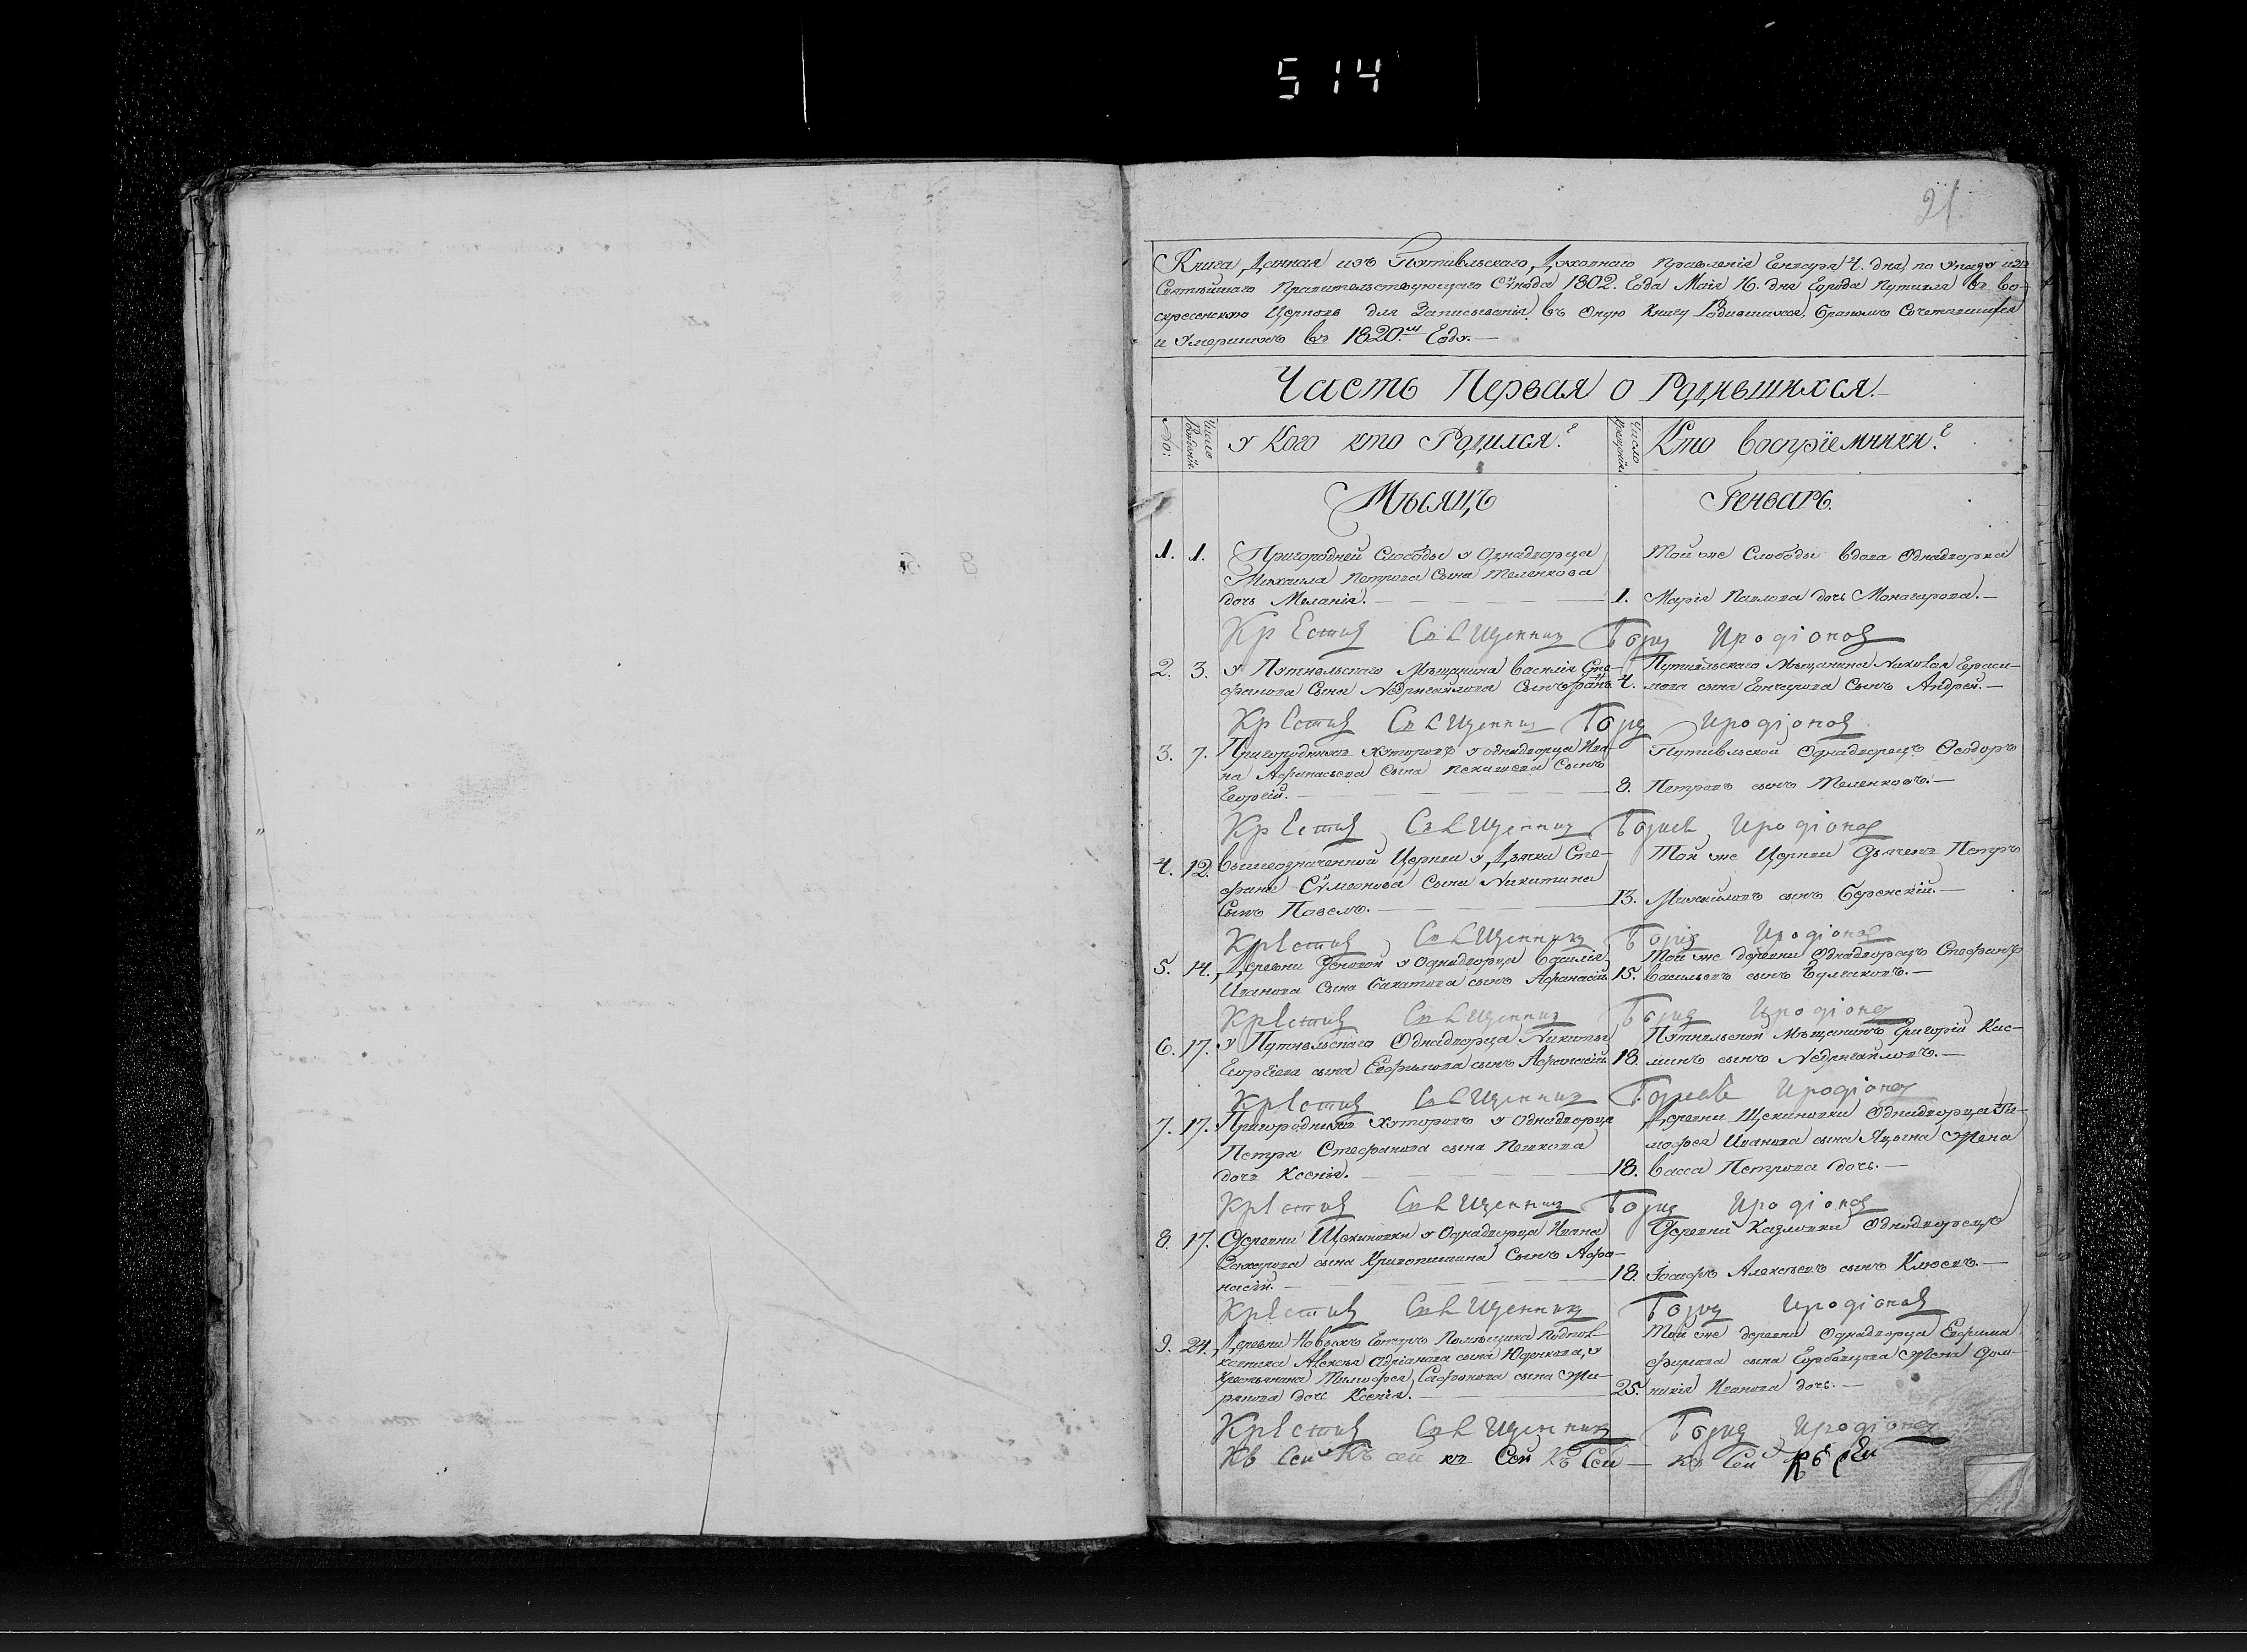 514
21
Книга Данная изъ Путивльскаго Духовнаго Правленія Генваря 4. дня по указу изъ
Святѣйшаго Правительствующаго Сѵнода 1802. Года Маія 16. дня Города Путивля въ Во-
скресенскою Церковь для Записыванія въ оную Книгу Родившихся, Бракомъ Сочетавшихся
и умершихъ въ 1820.м Году.—
Часть Первая о Родившихся.—
No: Число Рожденiя у Кого кто Родился? Число Крещенiя Кто воспрїемники?
Мѣсяцъ Генварь.
1. 1. Пригородней Слободы у Однадворца
Михаила Петрова Сына Теленкова
дочь Меланія.—
Той же Слободы вдова Однадворка
1. Марія Павлова дочь Монагарова.—
Крестил Священник Борис Иродіонов
2. 3. у Путивльскаго Мѣщанина Василія Сте-
фанова Сына Недригайлова Сынъ
Путивльскаго Мѣщанина Николая Гераси-
4. мова сына Гончарова Сынъ Андрей.—
Крестил Священник Борис Иродіонов
3. 7. Пригороднихъ Хуторовъ у однадворца Ива-
на Афанасьева Сына Сынъ
Георгій.—
Путивльской Однадворецъ Ѳеодоръ
8. Петровъ сынъ Теленковъ.—
Крестил Священник Борис Иродіонов
4. 12. вышеозначенной Церкви у Дьячка Сте-
фана Сѵмеонова Сына Никитина
Сынъ Павелъ.—
Той же Церкви Дьячекъ Петръ
13. Михайловъ сынъ
Крестил Священник Борис Иродіонов
5. 14. Деревни у Однадворца Василія
Иванова Сына сынъ Афанасій
Той же деревни Однадворецъ Стефанъ
15. Васильевъ сынъ
Крестил Священник Борис Иродіонов
6. 17. у Путивльскаго Однадворца Никиты
Георгіева сына Евфимова сынъ Афанасій.
Путивльской Мѣщанинъ Григорій Кос-
18.минъ сынъ Недригайловъ.—
Крестил Священник Борис Иродіонов
7. 17. Пригороднихъ Хуторовъ у Однадворца
Петра Стефанова сына Пешкова
дочь Ксенія.—
Деревни Щекиновки Однадворца Ти-
мофея Иванова сына Яцына Жена
18. Васса Петрова дочь.—
Крестил Священник Борис Иродіонов
8. 17. Деревни Щекиновки у Однадворца Ивана
Захарова сына Сынъ Афа-
насій.—
Деревни Казловки Однодворецъ
18. Іосифъ Алексѣевъ сынъ Клюевъ.—
Крестил Священник Борис Иродіонов
9. 24. Деревни Новыхъ Гончаръ Помѣщика Подпол-
ковника Алексѣя Адріанова сына Юденкова, у
Крестьянина Тимофея Сафонова сына
дочь Ксенія.—
Той же деревни Однадворца Евфима
сына Горбачова Жена Дом-
25. никія Иванова дочь.—
Крестил Священник Борис Иродіонов
Къ Сей Къ сей къ Сей Къ Сей — къ Сей Къ Сей